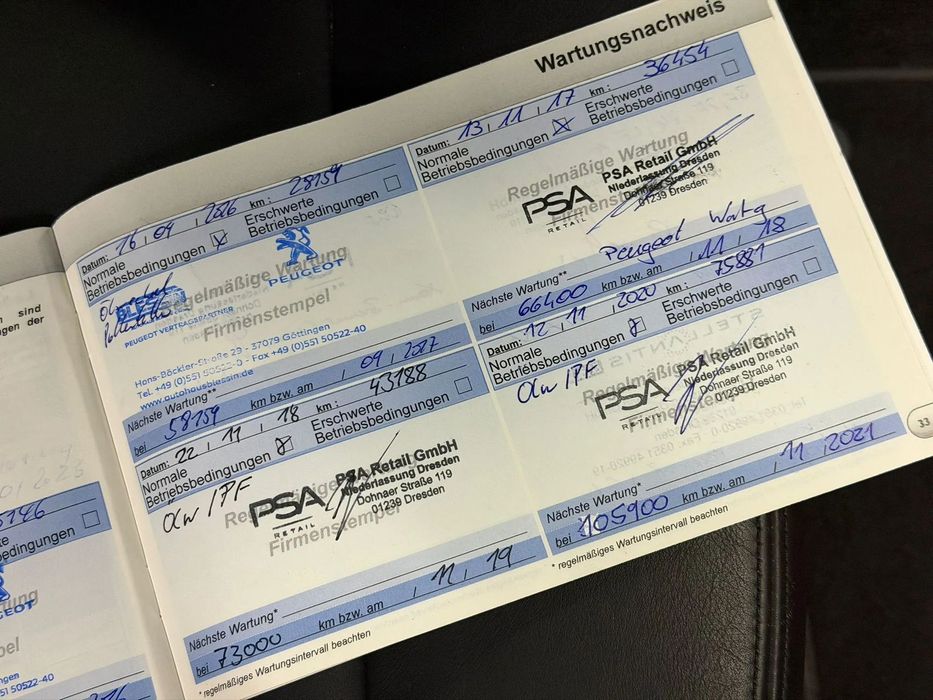 Wartungsnachweis
Datum: 16 , 09 , 2016 km : 28159
Normale Betriebsbedingungen
Erschwerte Betriebsbedingungen
Ölwechsel
PEUGEOT
Regelmäßige Wartung
Firmenstempel
PEUGEOT VERTRAGSPARTNER
Hans-Böckler-Straße 29 - 37079 Göttingen
Tel. +49 (0)551 50522-0 - Fax +49 (0)551 50522-40
www.autohausblessin.de
Nächste Wartung**
bei 58159 km bzw. am , 09 , 2017
Datum: 13 , 11 , 17 km : 36454
Normale Betriebsbedingungen
Erschwerte Betriebsbedingungen
Regelmäßige Wartung
Firmenstempel
PSA
RETAIL
PSA Retail GmbH
Niederlassung Dresden
Dohnaer Straße 119
01239 Dresden
Peugeot Wartg
Nächste Wartung**
bei 66400 km bzw. am , 11 , 18
Datum: 22 , 11 , 18 km : 43188
Normale Betriebsbedingungen
Erschwerte Betriebsbedingungen
Ölw / PF
PSA
RETAIL
PSA Retail GmbH
Niederlassung Dresden
Dohnaer Straße 119
01239 Dresden
Firmenstempel
Nächste Wartung*
bei 73000 km bzw. am , 11 , 19
* regelmäßiges Wartungsintervall beachten
Datum: 12 , 11 , 2020 km : 75881
Normale Betriebsbedingungen
Erschwerte Betriebsbedingungen
Ölw / PF
Regelmäßige Wartung
Firmenstempel
PSA
RETAIL
PSA Retail GmbH
Niederlassung Dresden
Dohnaer Straße 119
01239 Dresden
Nächste Wartung*
bei 105900 km bzw. am , 11 , 2021
* regelmäßiges Wartungsintervall beachten
33